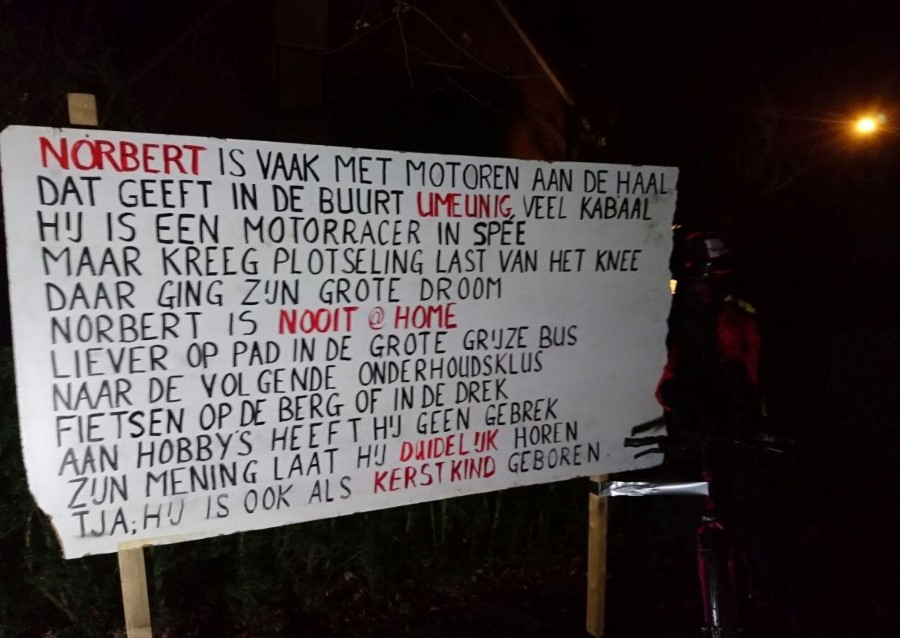 NORBERT IS VAAK MET MOTOREN AAN DE HAAL
DAT GEEFT IN DE BUURT UMEUNIG VEEL KABAAL
HIJ IS EEN MOTORRACER IN SPÉE
MAAR KREEG PLOTSELING LAST VAN HET KNEE
DAAR GING ZIJN GROTE DROOM
NORBERT IS NOOIT @ HOME
LIEVER OP PAD IN DE GROTE GRIJZE BUS
NAAR DE VOLGENDE ONDERHOUDSKLUS
FIETSEN OP DE BERG OF IN DE DREK
AAN HOBBY'S HEEFT HIJ GEEN GEBREK
ZIJN MENING LAAT HIJ DUIDELIJK HOREN
TJA; HIJ IS OOK ALS KERSTKIND GEBOREN.